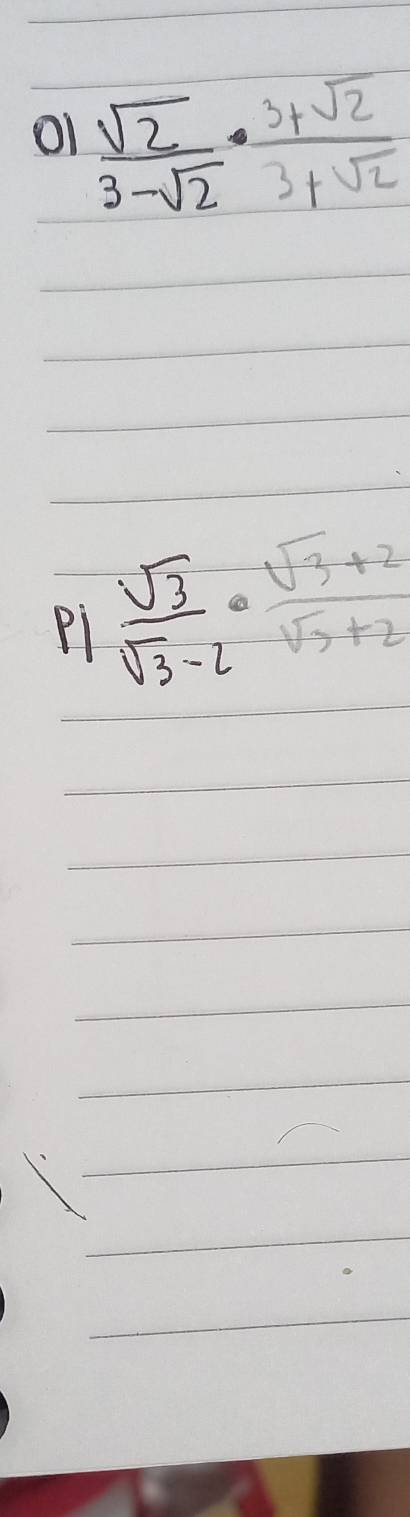 o) √2/(3-√2) • (3+√2)/(3+√2)
p) √3/(√3-2) • (√3+2)/(√3+2)